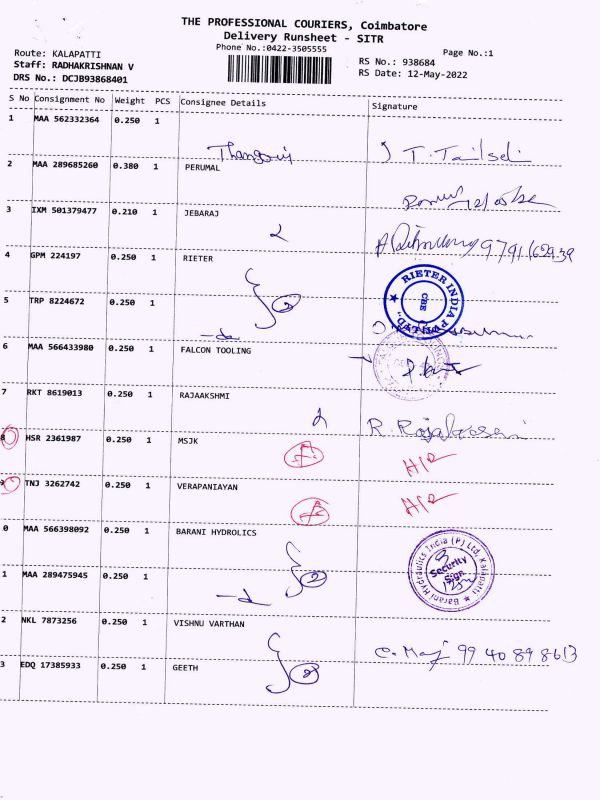 THE PROFESSIONAL COURIERS, Coimbatore
Delivery Runsheet - SITR
Phone No.:0422-3505555
Page No.:1
Route: KALAPATTI
Staff: RADHAKRISHNAN V
DRS No.: DCJB93868401
RS No.: 938684
RS Date: 12-May-2022
S No Consignment No Weight PCS Consignee Details Signature
1 MAA 562332364 0.250 1
2 MAA 289685260 0.380 1 PERUMAL
3 IXM 501379477 0.210 1 JEBARAJ
9791162939
4 GPM 224197 0.250 1 RIETER
RIETER INDIA PVT LTD., CBE
5 TRP 8224672 0.250 1
6 MAA 566433980 0.250 1 FALCON TOOLING
7 RKT 8619013 0.250 1 RAJAAKSHMI
8 HSR 2361987 0.250 1 MSJK
9 TNJ 3262742 0.250 1 VERAPANIAYAN
0 MAA 566398092 0.250 1 BARANI HYDROLICS
Barani Hydraulics India (P) Ltd, Kalapatti
Security
Sign
1 MAA 289475945 0.250 1
2 NKL 7873256 0.250 1 VISHNU VARTHAN
99 40 89 8613
3 EDQ 17385933 0.250 1 GEETH